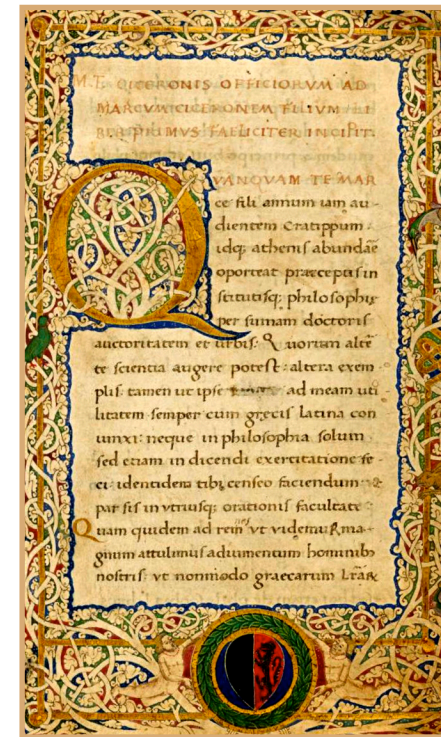 M.T. CICERONIS OFFICIORVM AD
MARCVM CICERONEM FILIVM LI
BER PRIMVS FAELICITER INCIPIT.
QVANQVAM TE MAR
ce fili annum iam au
dientem Cratippum
idq; athenis abundāe
oporteat præceptis in
stitutisq; philosophię
per sumam doctoris
auctoritatem et urbis: Quorum altē
te scientia augere potest: altera exem
plis: tamen ut ipse ad meam uti
litatem semper cum gręcis latina con
iunxi: neque in philosophia solum
sed etiam in dicendi exercitatione fe
ci: identidem tibi censeo faciendum:
par sis in utriusq; orationis facultate
Quam quidem ad rem nos vt videmur ma
gnum attulimus adiumentum hominibꝫ
nostris: vt nonmodo graecarum